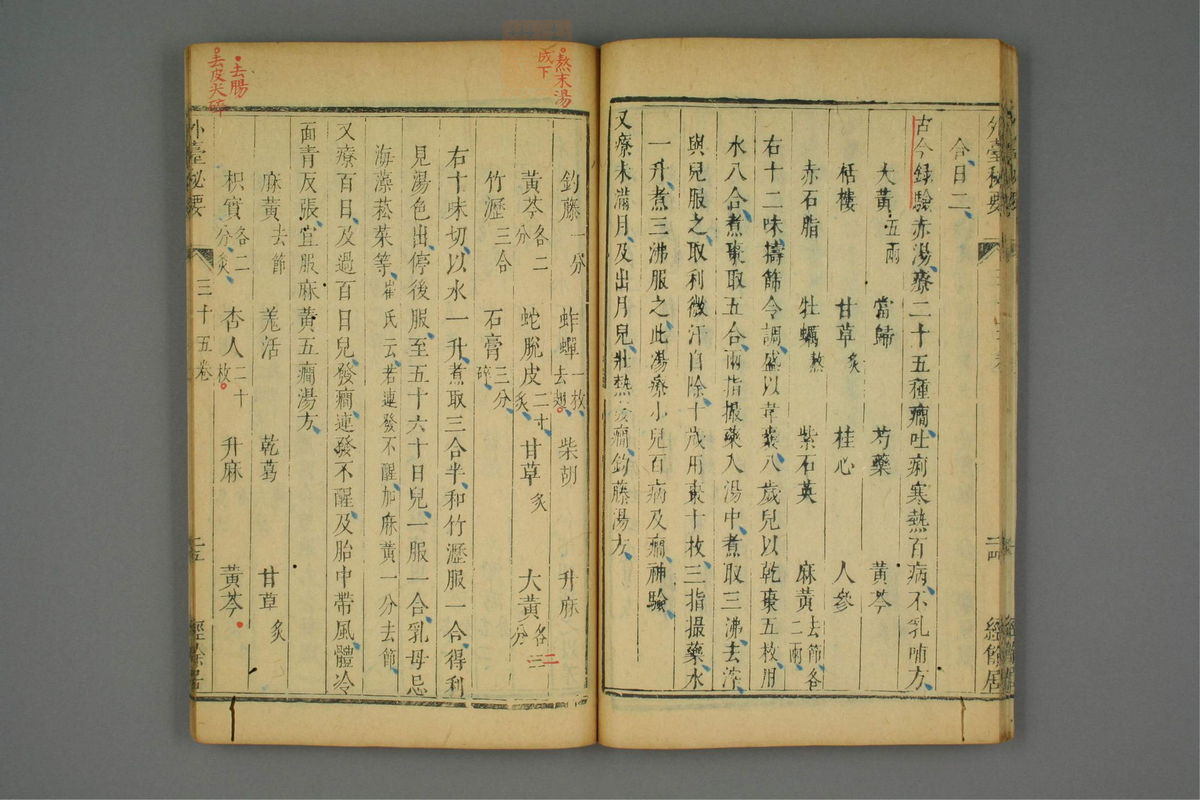 合日二
古今録驗赤湯療二十五種癇吐痢寒熱百病不乳哺方
大黃五兩 當歸 芍藥 黃芩
栝樓 甘草炙 桂心 人參
赤石脂 牡蠣熬 紫石英 麻黃去節各二兩
右十二味擣篩令調盛以韋囊八歲兒以乾棗五枚用
水八合煮棗取五合兩指撮藥入湯中煮取三沸去滓
與兒服之取利微汗自除十歲用棗十枚三指撮藥水
一升煮三沸服之此湯療小兒百病及癇神驗
又療未滿月及出月兒壯熱發癇鈎藤湯方
熬末湯
成下
鈎藤一分 蚱蟬一枚去翅 柴胡 升麻
黃芩各二分 蛇脫皮二寸炙 甘草炙 大黃各三分
二
竹瀝三合 石膏三分碎
右十味切以水一升煮取三合半和竹瀝服一合得利
見湯色出停後服至五十六十日兒一服一合乳母忌
海藻菘菜等崔氏云若連發不醒加麻黃一分去節
又療百日及過百日兒發癇連發不醒及胎中帶風體冷
面青反張宜服麻黃五癇湯方
去腸
去皮尖碎
麻黃去節 羌活 乾葛 甘草炙
枳實各二分炙 杏人二十枚 升麻 黃芩
外臺秘要 三十五卷 二五 經餘居